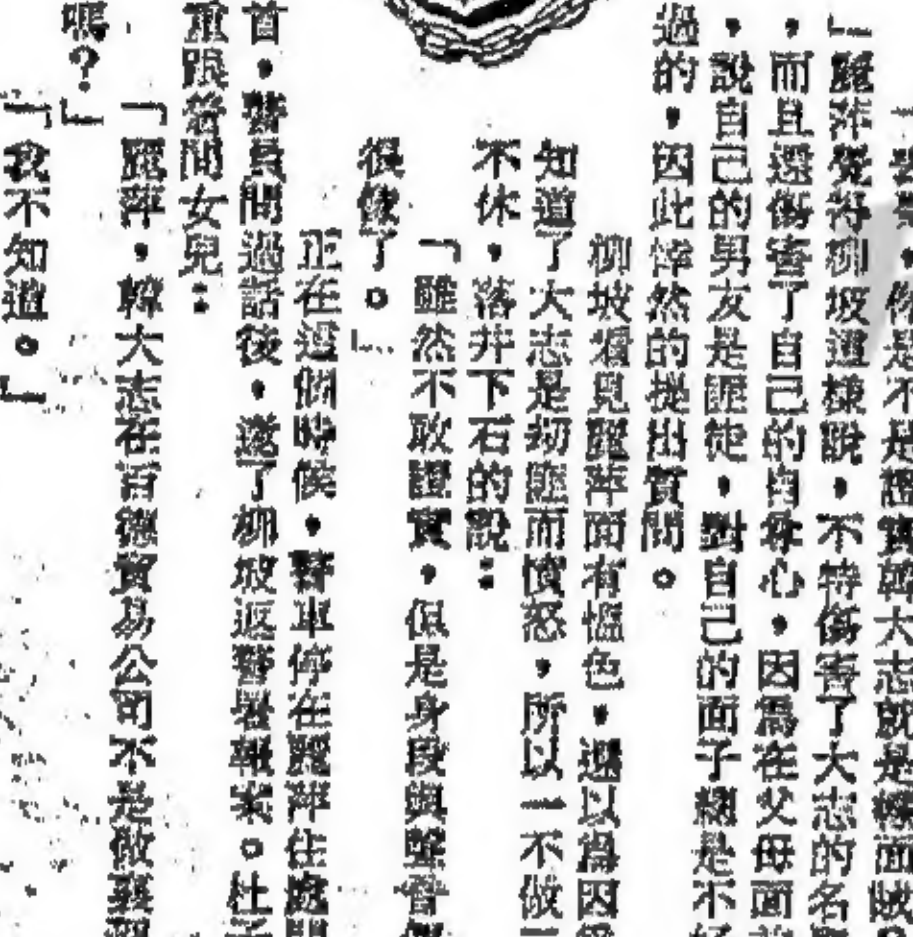 你是不是證實韓大志就是幪面賊?
」麗萍覺得柳坡這樣說,不特傷害了大志的名
,而且還傷害了自己的自尊心,因為在父母面前
,說自己的男友是匪徒,對自己的面子總是不好
過的,因此悻然的提出質問。
柳坡看見麗萍面有慍色,還以為因為
知道了大志是刧匪而憤怒,所以一不做二
不休,落井下石的說:
「雖然不敢證實,但是身段與聲音
很像了。」
正在這個時候,警車停在麗萍住處門
首,警員問過話後,邀了柳坡返警署報案。杜
重跟着問女兒:
「麗萍,韓大志在百德貿易公司不是做
嗎?」
「我不知道。」